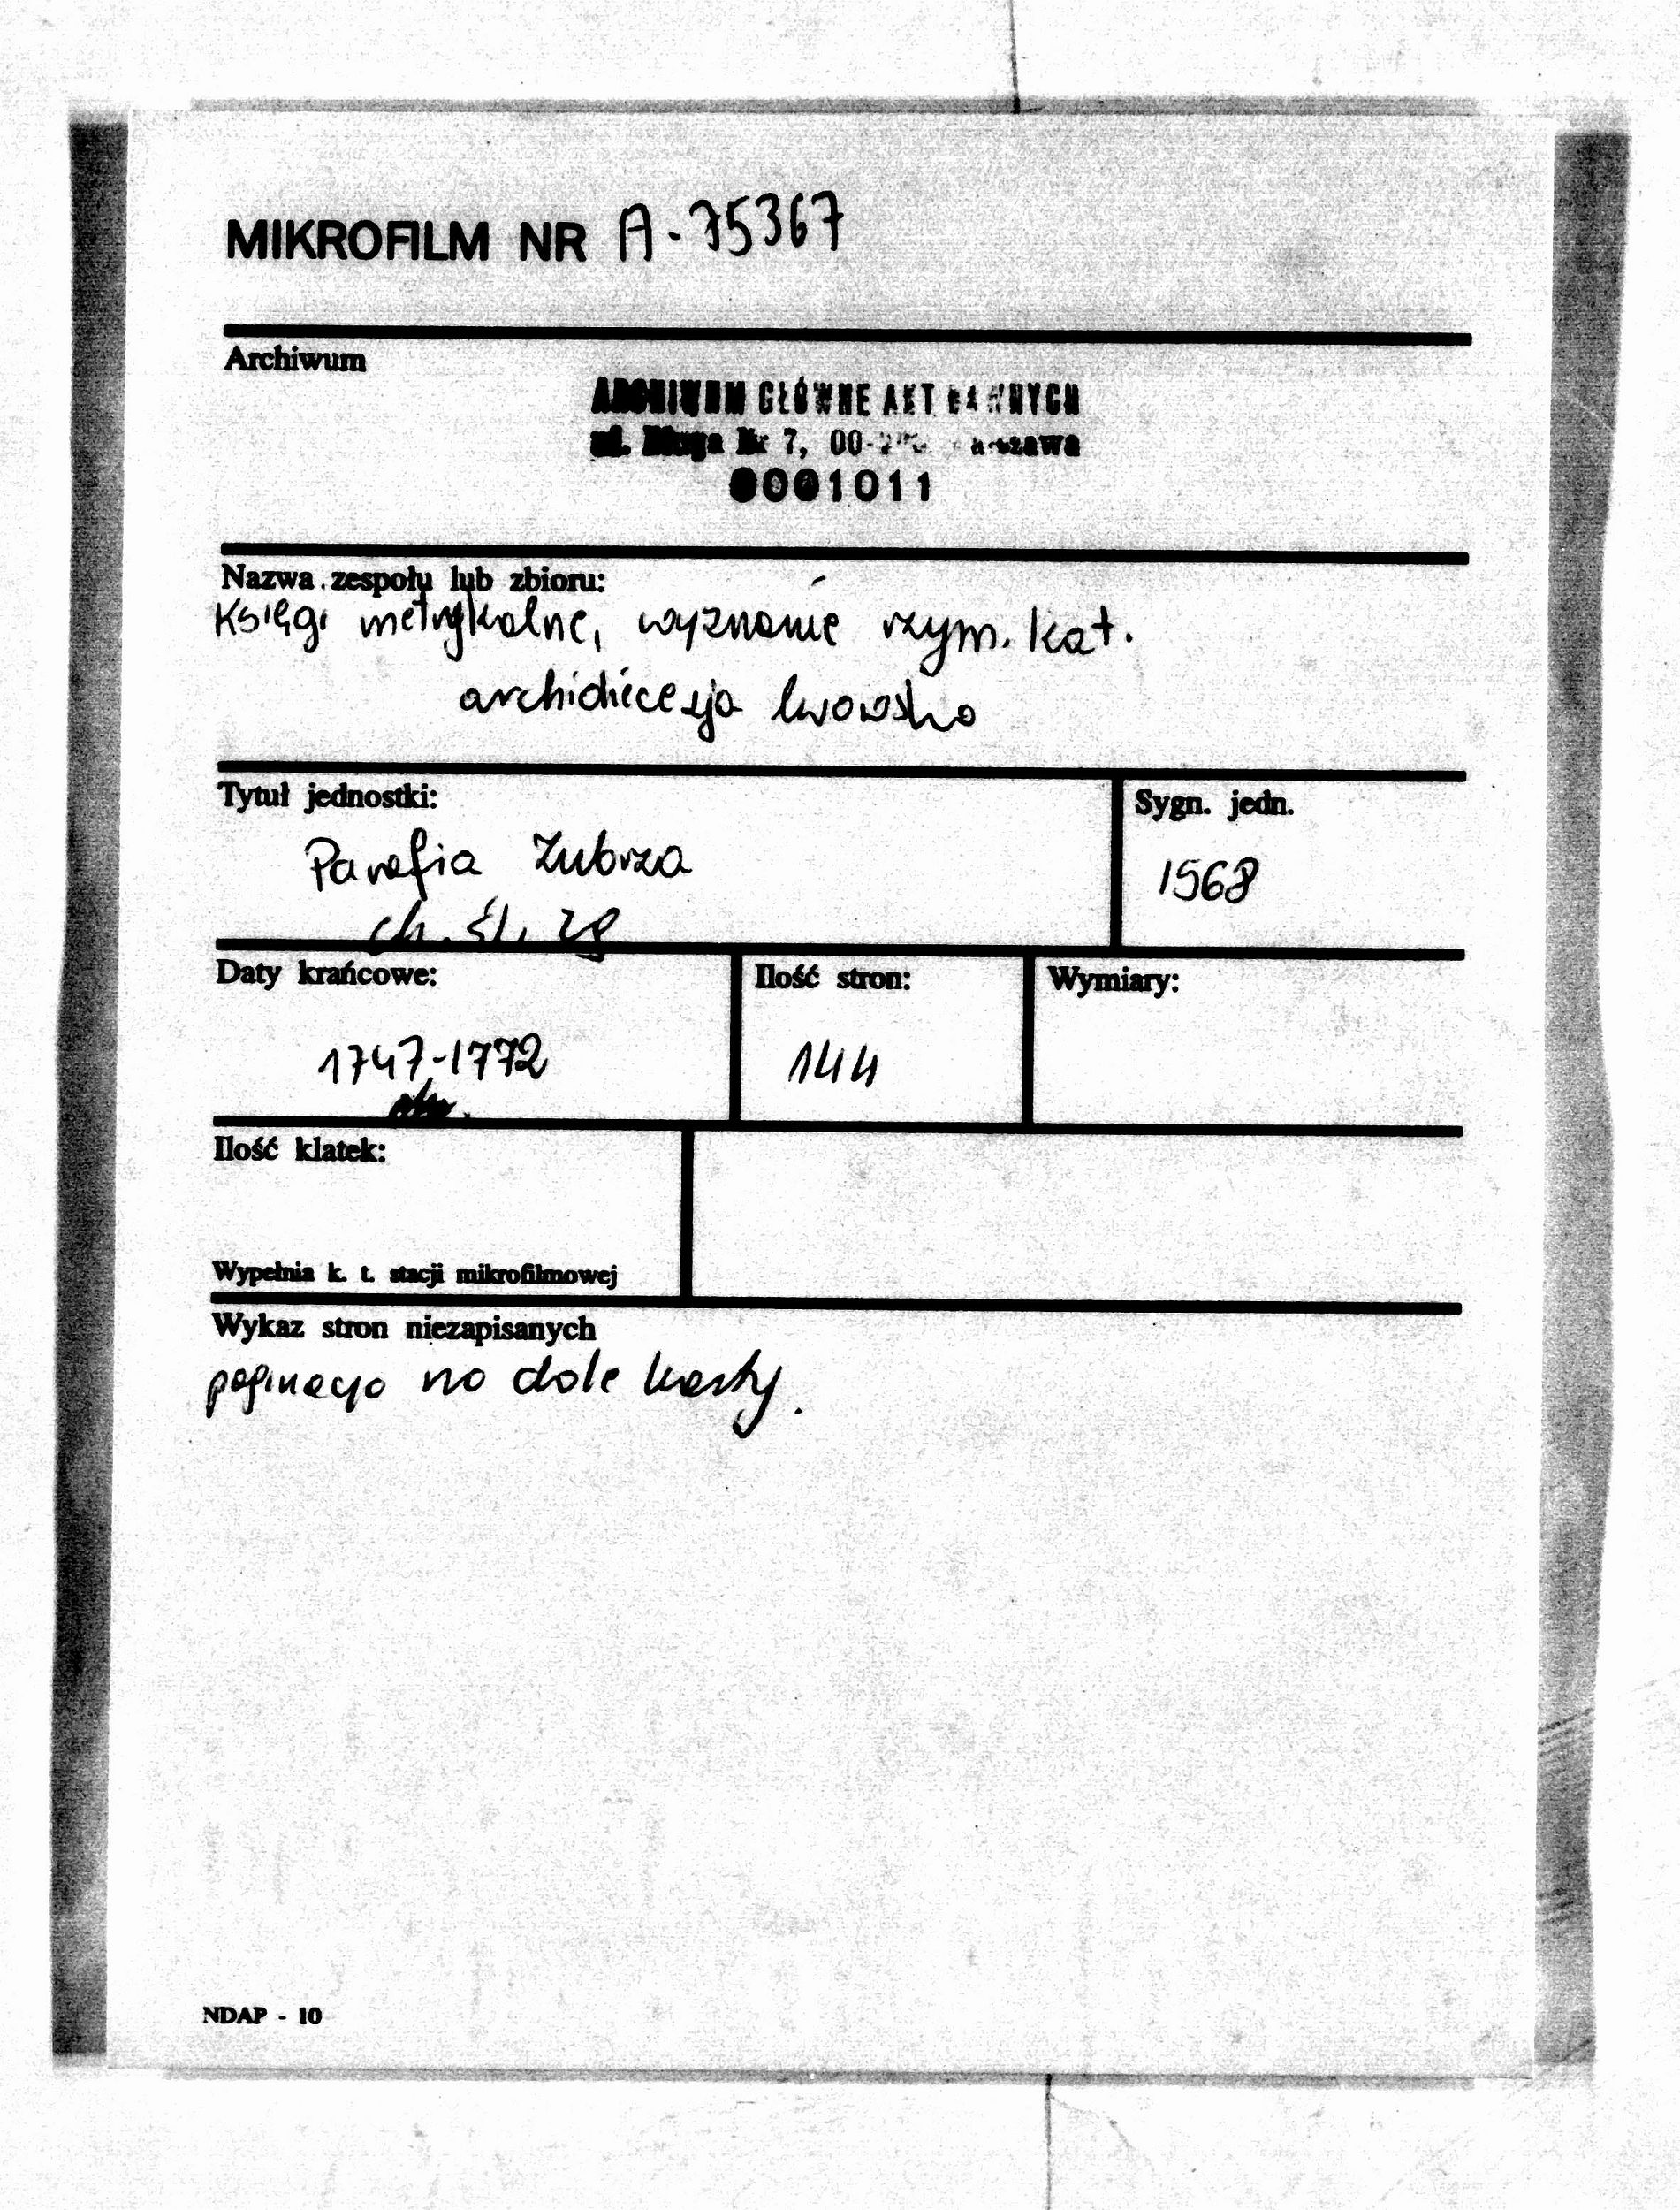 MIKROFILM NR A-75367
Archiwum
ARCHIWUM GŁÓWNE AKT DAWNYCH
ul. Długa Nr 7, 00- Warszawa
0001011
Nazwa zespołu lub zbioru:
Księgi metrykalne, wyznanie rzym. kat.
archidiecezja lwowska
Tytuł jednostki:
Sygn. jedn.
Parafia Zubrza
1568
ch. śl. zg
Daty krańcowe:
Ilość stron:
Wymiary:
1747-1772
144
Ilość klatek:
Wypełnia k. t. stacji mikrofilmowej
Wykaz stron niezapisanych
paginacja na dole karty.
NDAP - 10